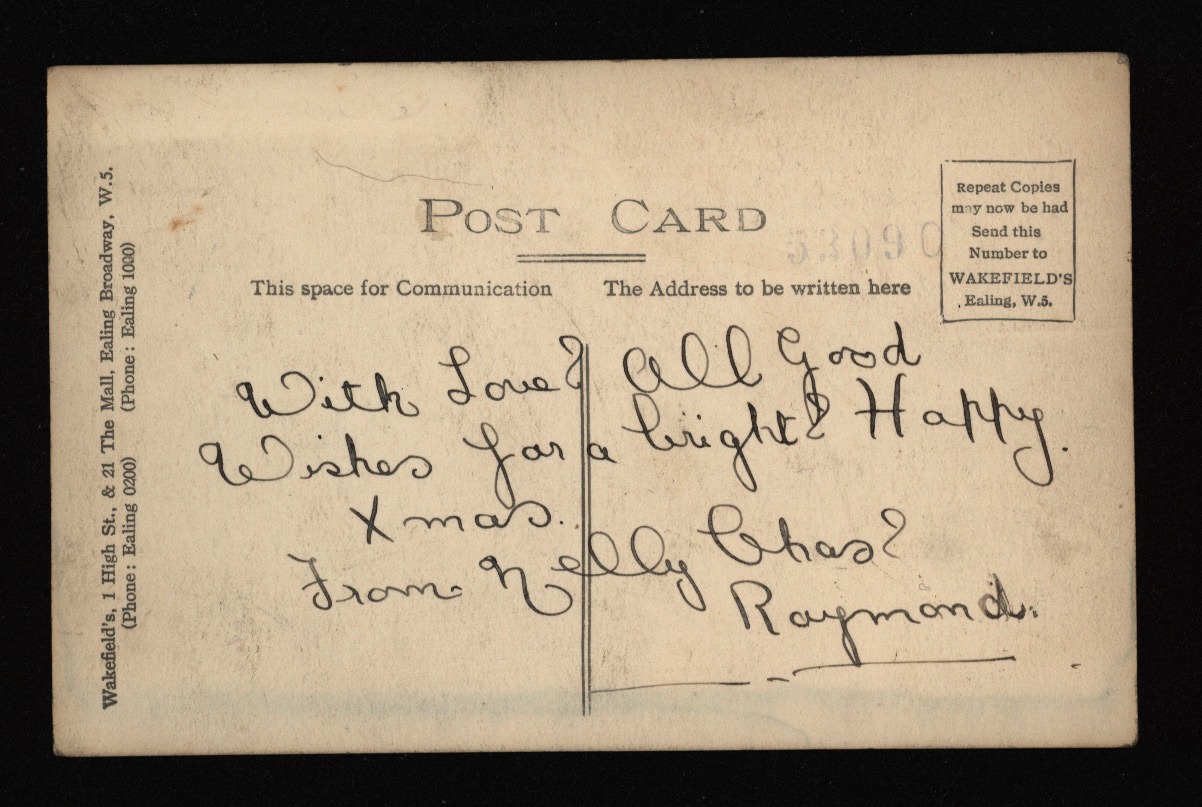 Wakefield's, 1 High St., & 21 The Mall, Ealing Broadway, W.5.
(Phone: Ealing 0200) (Phone: Ealing 1000)
POST CARD
This space for Communication
The Address to be written here
53090
Repeat Copies
may now be had
Send this
Number to
WAKEFIELD'S
Ealing, W.5.
With Love & All Good
Wishes for a bright & Happy.
Xmas.
From Nelly Chas &
Raymond.